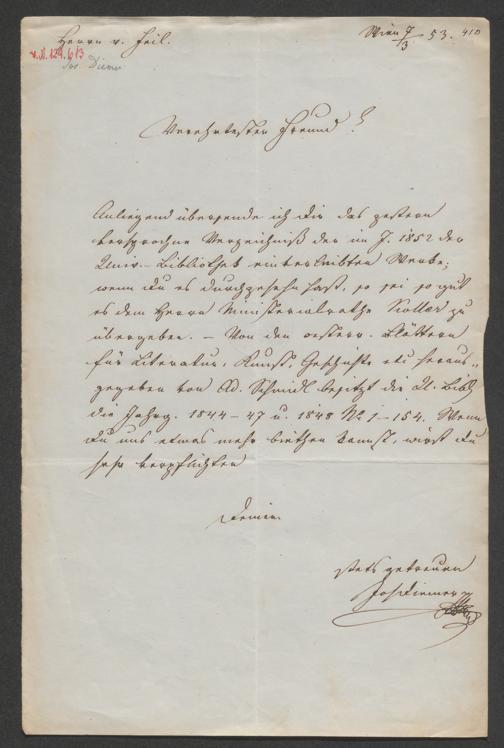 Herrn v. Feil.
Wien 7/3 53. 410
v.N. 129.613
Jos. Diemer
Verehrtester Freund!
Anliegend übersende ich dir das gestern
versprochne Verzeichniß der im J. 1852 der
Univ.-Bibliothek einverleibten Werke;
wenn du es durchgesehn hast, so sei so gut
es dem Herrn Ministerialrathe zu
übergeben. – Von den oesterr. Blättern
für Literatur, Kunst, Geschichte etc heraus„
gegeben von Ad. Schmidl besitzt die U. Bibl.
die Jahrg. 1844–47 u. 1848 No 1–154. Wenn
du uns etwas mehr biethen kannst, wirst du
sehr verpflichten
Deinen
stets getreuen
Jos Diemer